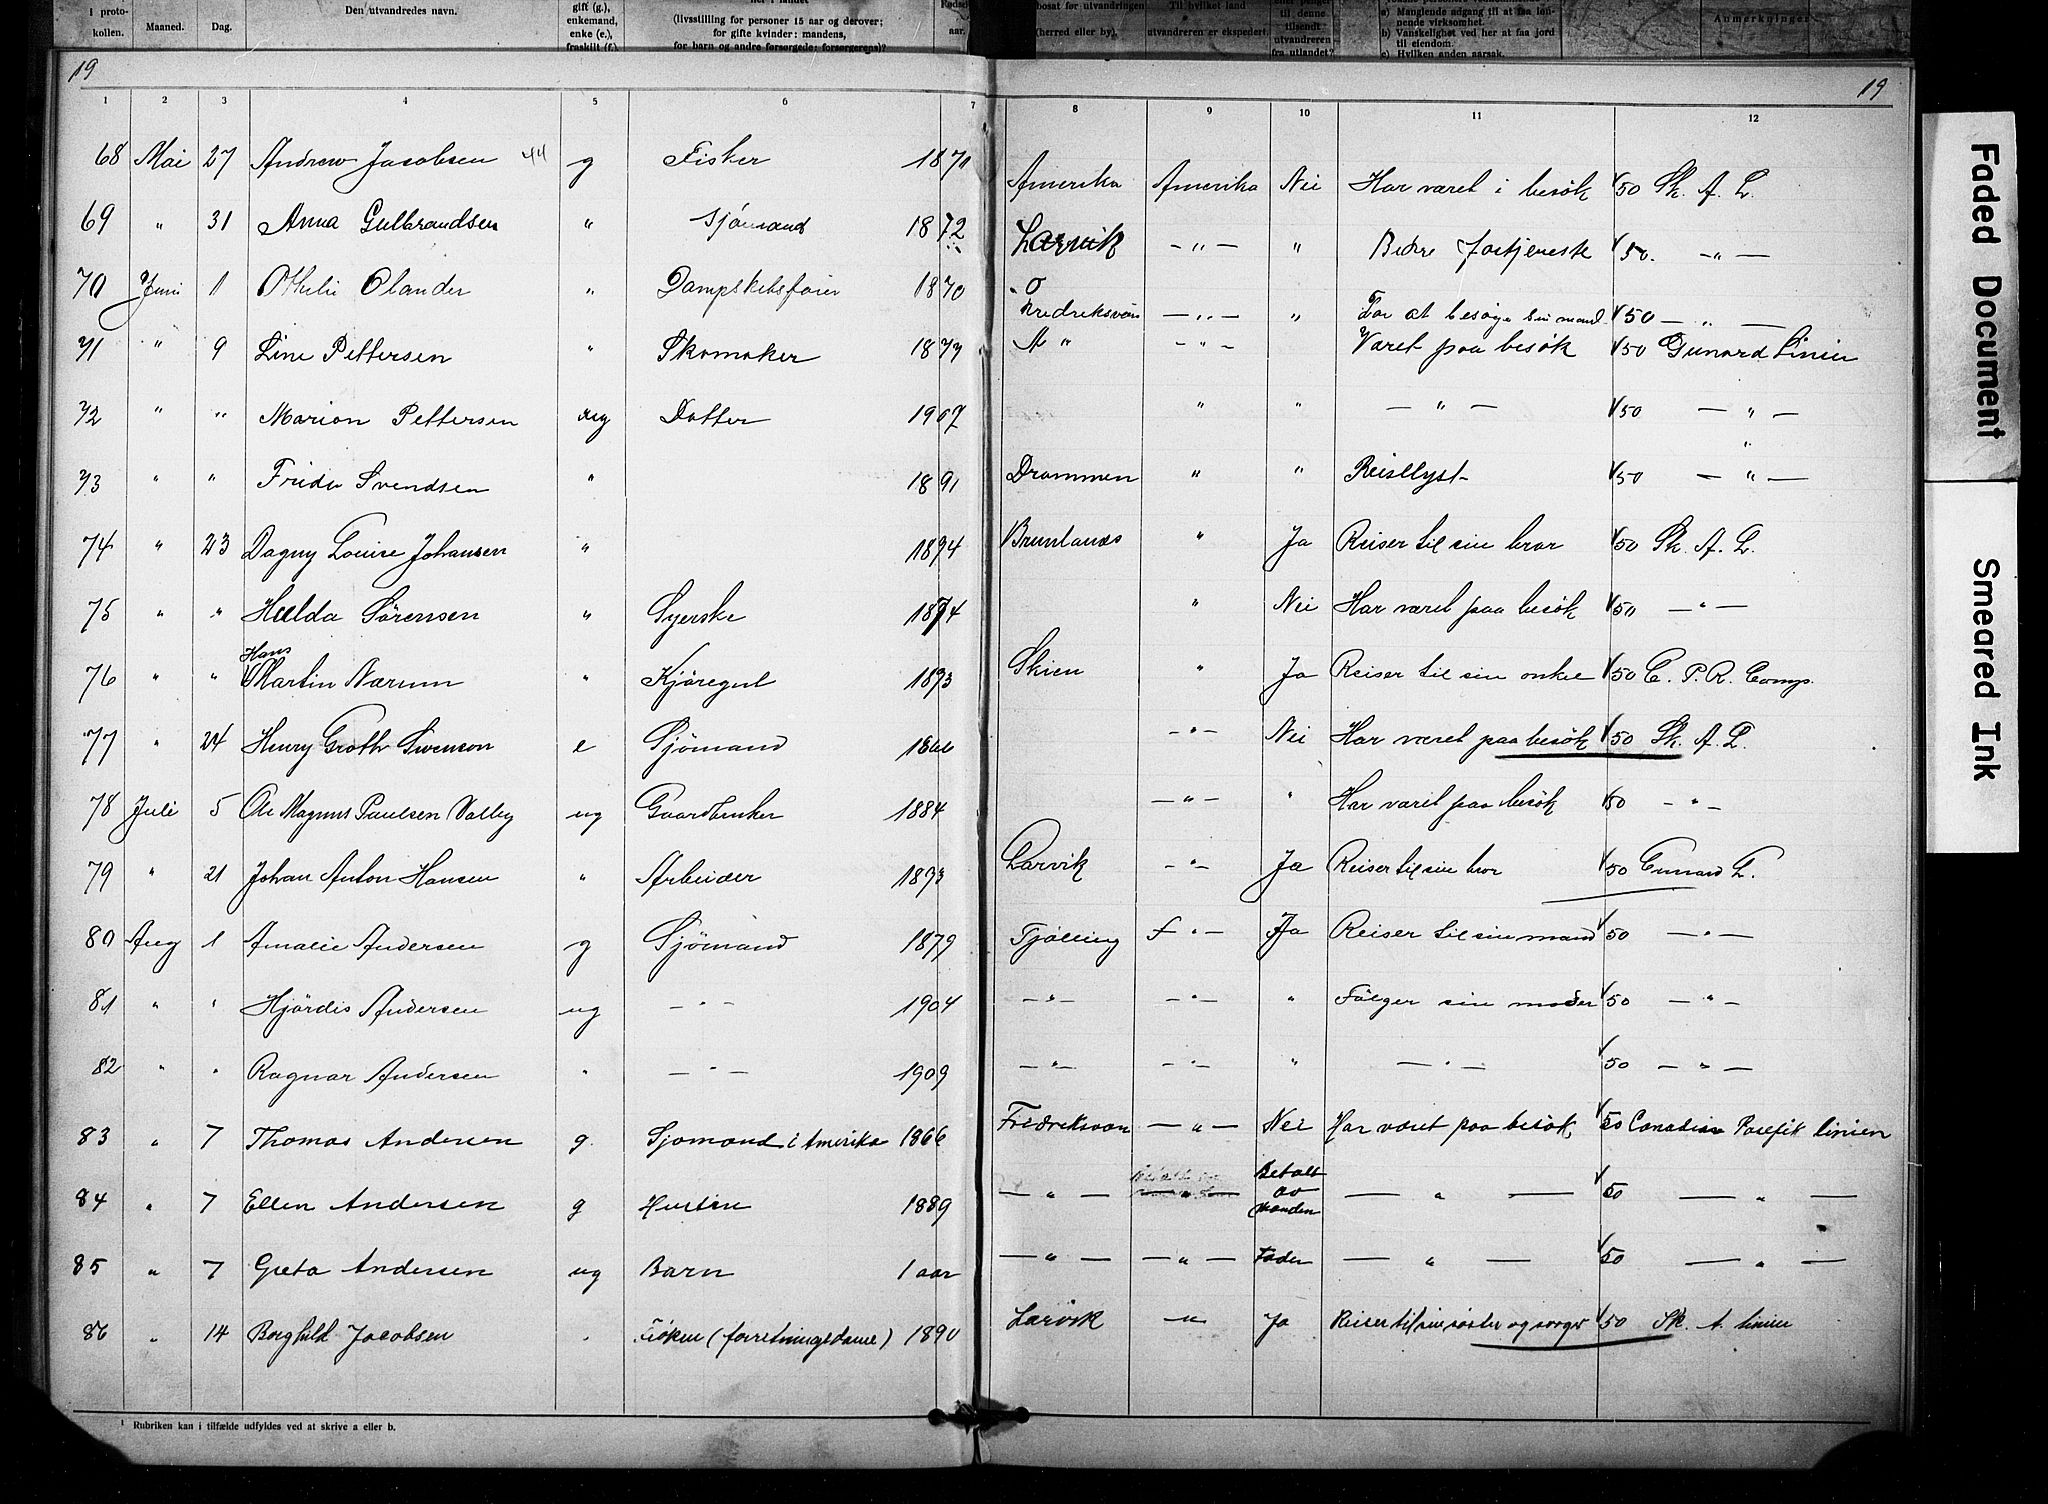 i proto-
kollen.
Maaned.
Dag.
Den utvandredes navn.
gift (g.),
enkemand,
enke (e.),
fraskilt (f.)
(livsstilling for personer 15 aar og derover;
for gifte kvinder: mandens,
for barn og andre forsørgede: forsørgerens)?
aar.
bosat før utvandringen
(herred eller by).
Til hvilket land
utvandreren er ekspedert.
til denne
tilsendt
utvandreren
fra utlandet?
a) Manglende adgang til at faa løn-
nende virksomhet.
b) Vanskelighet ved her at faa jord
til eiendom.
c) Hvilken anden aarsak.
Anmerkninger
19 19
1 2 3 4 5 6 7 8 9 10 11 12
68 Mai 27 Andrew Jacobsen 44 g Fisker 1871 Amerika Amerika Nei Har været i besök 50 Sk. A. L.
69 " 31 Anna Gulbrandsen " Sjömand 1872 Larvik — " — " Bedre fortjeneste 50. — " —
70 Juni 1 Othilie Olander " Dampskibsfører 1870 Fredriksvärn — " — " For at besöge sin mand 50 — " —
71 " 9 Line Pettersen " Skomaker 1877 " — " — Været paa besök 50 Cunard Linien
72 " " Marion Pettersen ug Datter 1907 " " — " — 50 — " —
73 " " Frida Svendsen " 1891 Drammen " " Reiselyst 50 — " —
74 " 23 Dagny Louise Johansen " 1894 Brunlanæs " Ja Reiser til sin bror 50 Sk. A. L.
75 " " Hulda Sörensen " Syerske 1874 " Nei Har været paa besök 50 — " —
Hans
76 " " Martin Nærum " Kjöregut 1893 Skien " Ja Reiser til sin onkel 50 C. P. R. Comp.
77 " 24 Henry Groth Swenson e Sjömand 1866 — " — Nei Har været paa besök 50 Sk. A. L.
78 Juli 5 Ole Magnus Paulsen Valby ug Gaardbruker 1884 — " — " Har været paa besök 50 — " —
79 " 21 Johan Anton Hansen " Arbeider 1893 Larvik — " — Ja Reiser til sin bror 50 Cunard L.
80 Aug 1 Amalie Andersen g Sjömand 1879 Tjölling — " — Ja Reiser til sin mand 50 — " —
81 " " Hjördis Andersen ug — " — 1904 — " — — " — " Fölger sin moder 50 — " —
82 " " Ragnar Andersen " — " — 1909 — " — — " — " — " — 50 — " —
83 " 7 Thomas Andersen g. Sjømand i Amerika 1866 Fredriksværn — " — Nei Har været paa besök 50 Canadian Pasefik linien
84 " 7 Ellen Andersen g Hustru 1889 — " — — " — Betalt av Manden — " — 50 — " —
85 " 7 Greta Andersen ug Barn 1 aar — " — — " — Fader — " — 50 — " —
86 " 14 Borghild Jacobsen " Fröken (forretningsdame) 1890 Larvik — " — Ja Reiser til sin søster og svoger 50 Sk. A. Linien
¹ Rubriken kan i tilfælde utfyldes ved at skrive a eller b.
Faded Document
Smeared Ink